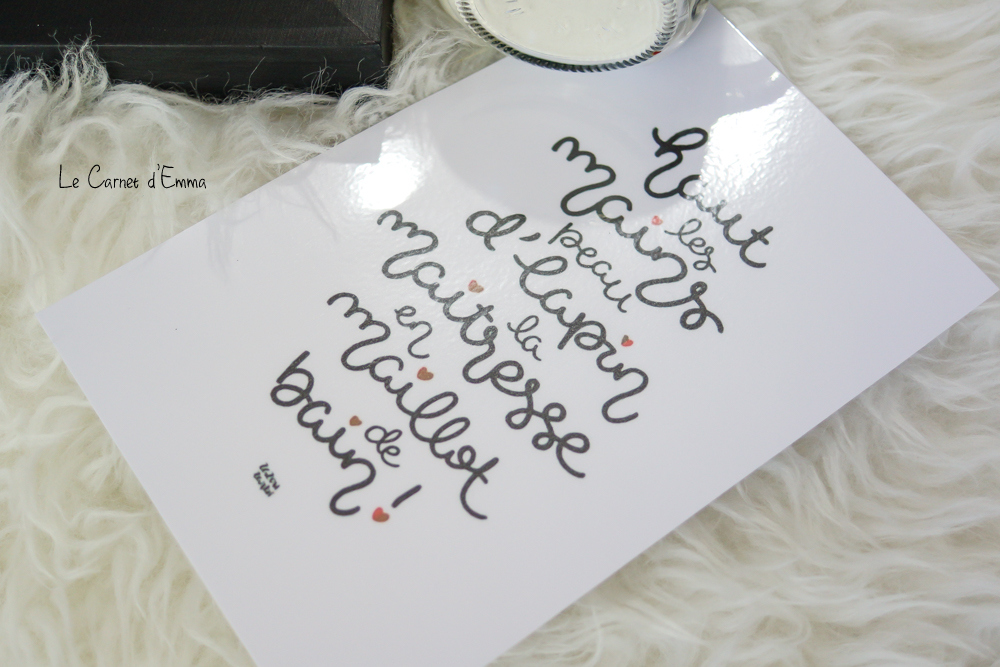 Le Carnet d'Emma
haut
les
mains
peau
d'lapin
la
maitresse
en
maillot
de
bain !